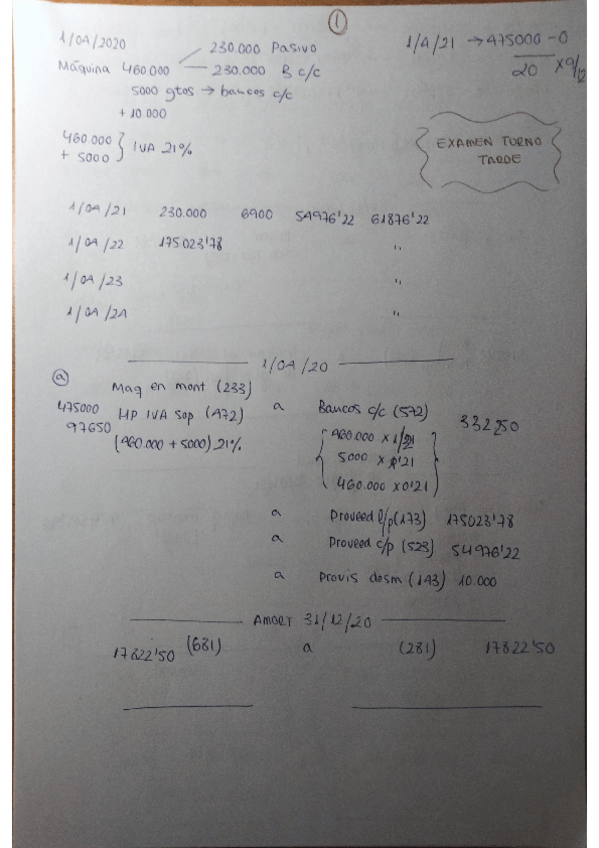 1
1/04/2020
230.000 Pasivo
1/4/21 → 475000 - 0
20 x 9/12
Máquina 460.000 — 230.000 B c/c
5000 gtos → bancos c/c
+ 10.000
460.000
+ 5000 } IVA 21%
EXAMEN TURNO
TARDE
1/04/21 230.000 6900 54976'22 61876'22
1/04/22 175023'78 "
1/04/23 "
1/04/24 "
1/04/20
a
Maq en mont (233)
475000 HP IVA Sop (472) a Bancos c/c (572) 332250
97650
(460.000 + 5000) 21%
5000 x 1'21
460.000 x 0'21
a Proveed l/p (173) 175023'78
a Proveed c/p (523) 54976'22
a Provis desm (143) 10.000
AMORT 31/12/20
17822'50 (681) a (281) 17822'50